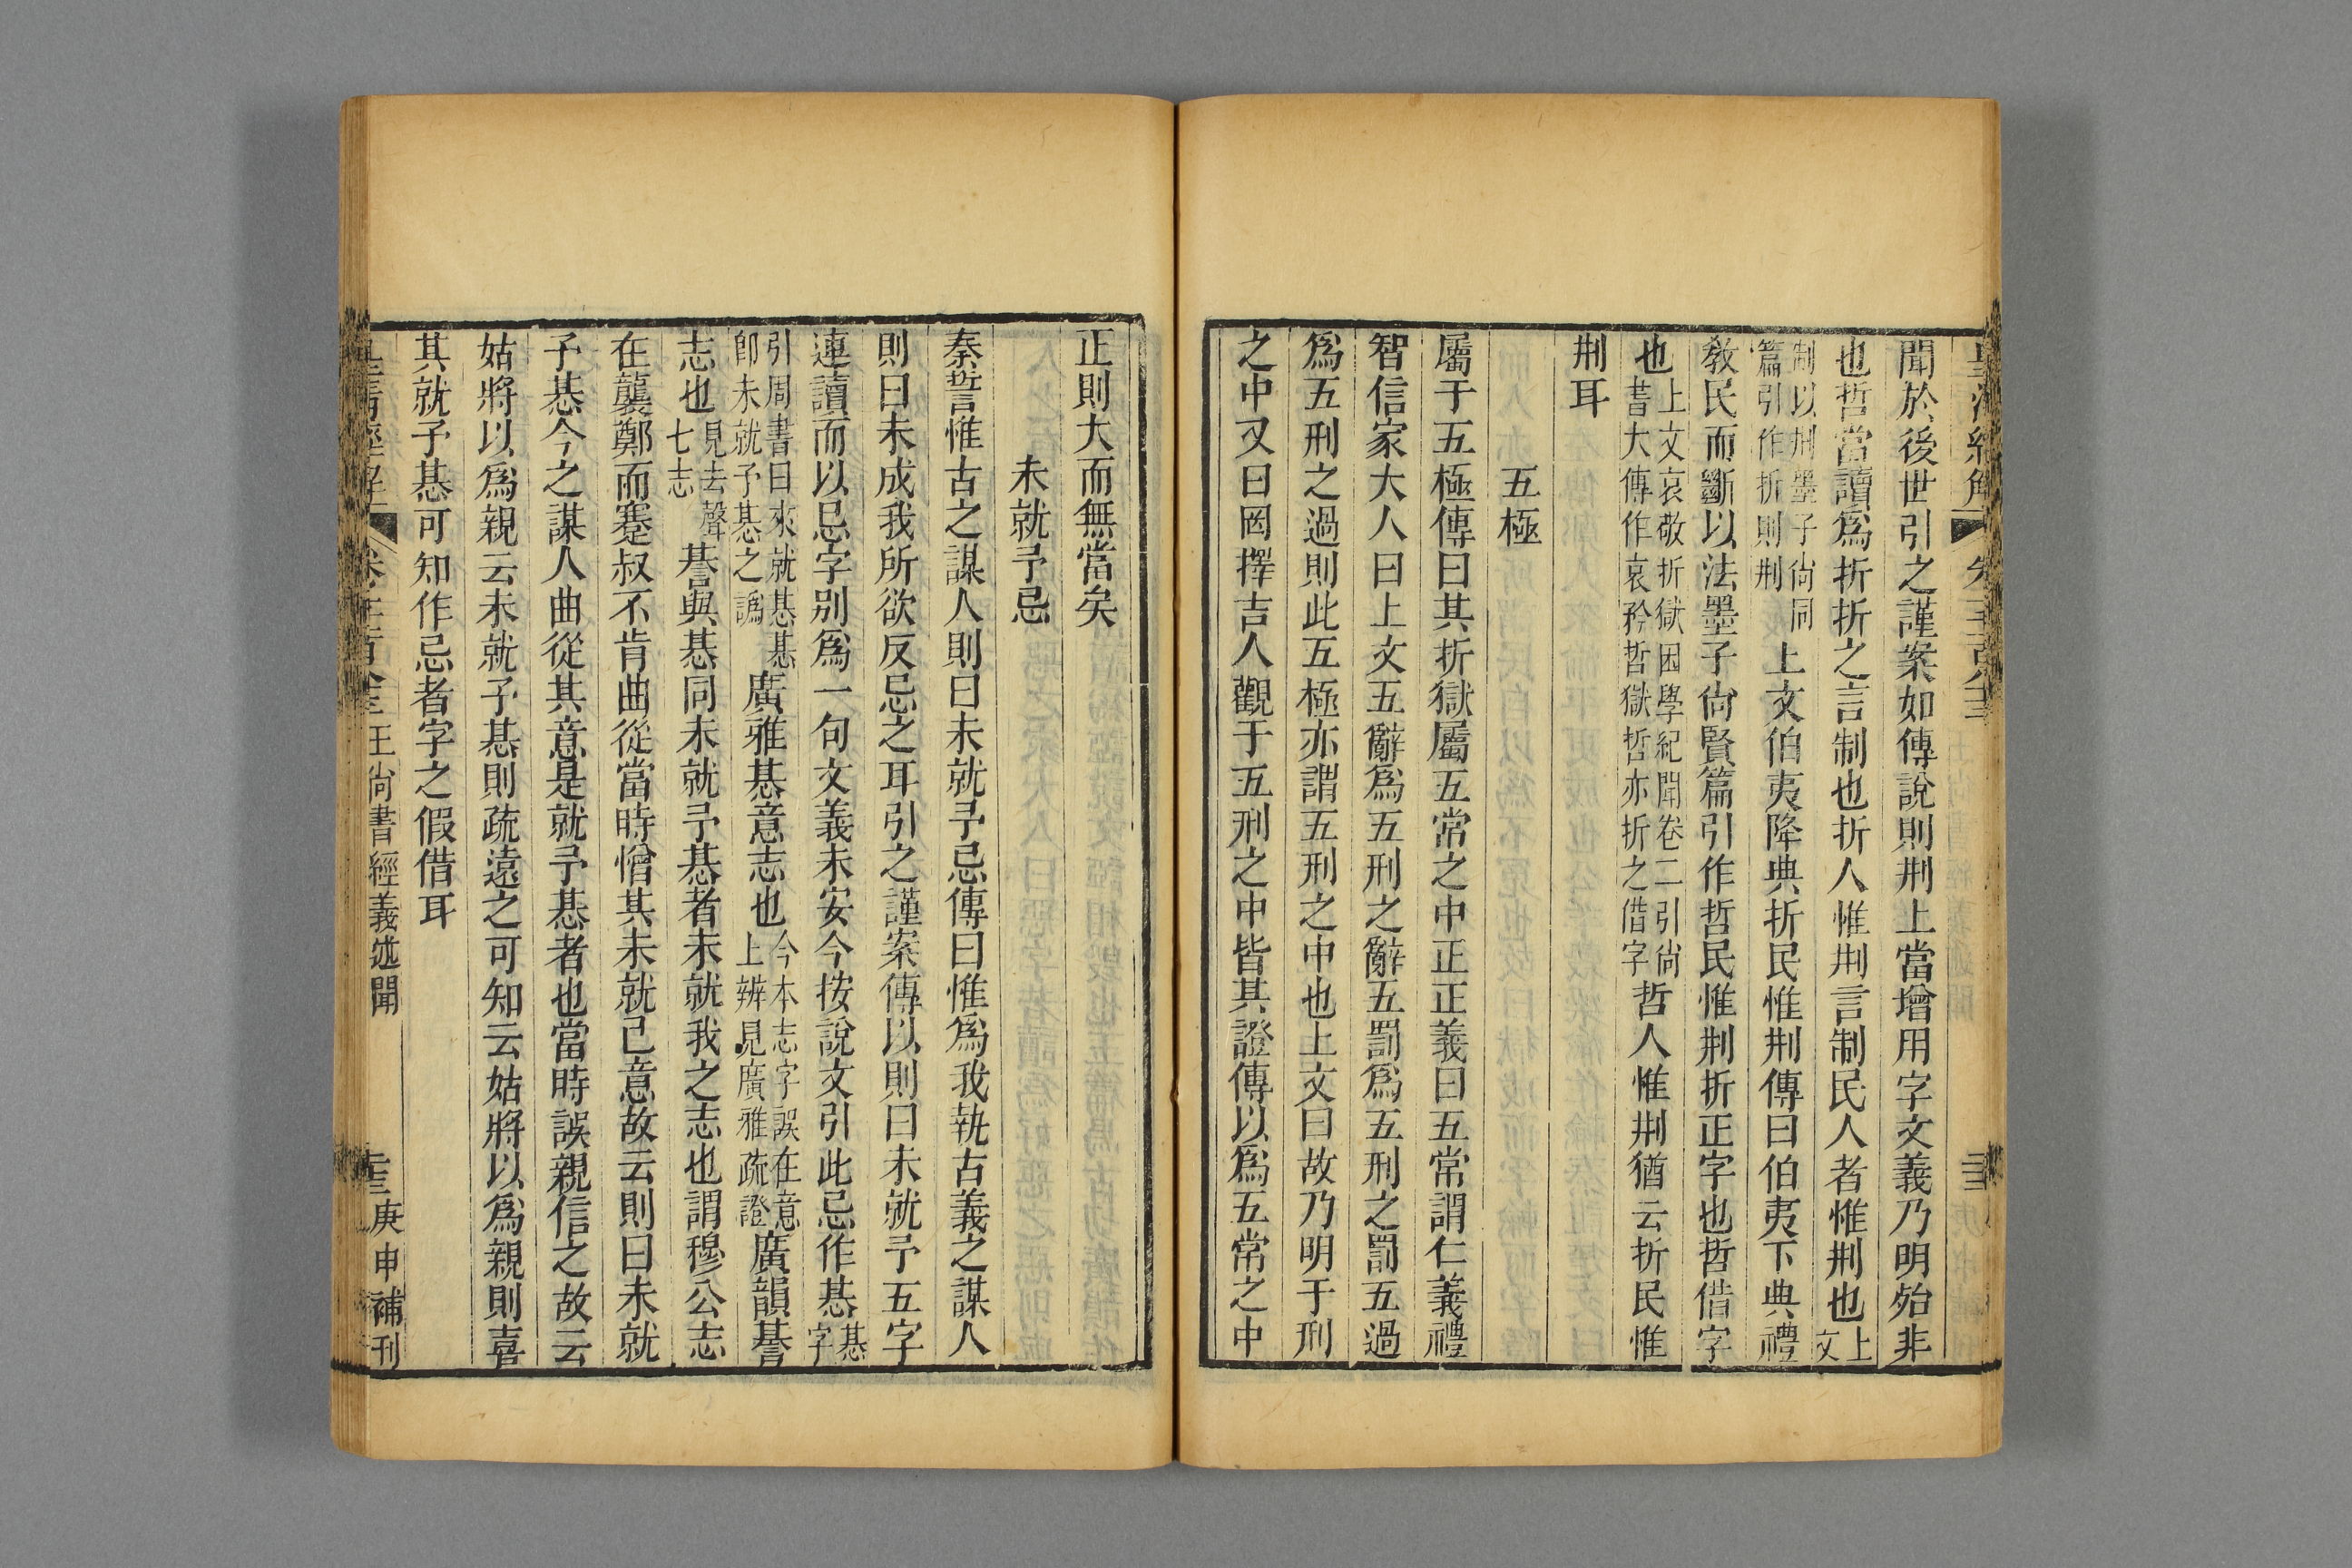 聞於後世引之謹案如傳說則刑上當增用字文義乃明殆非
也哲當讀爲折折之言制也折人惟刑言制民人者惟刑也上文
制以刑墨子尙同篇引作折則刑上文伯夷降典折民惟刑傳曰伯夷下典禮
敎民而斷以法墨子尙賢篇引作哲民惟刑折正字也哲借字
也上文哀敬折獄困學紀聞卷二引尙書大傳作哀矜哲獄哲亦折之借字哲人惟刑猶云折民惟
刑耳
五極
屬于五極傳曰其折獄屬五常之中正正義曰五常謂仁義禮
智信家大人曰上文五辭爲五刑之辭五罰爲五刑之罰五過
爲五刑之過則此五極亦謂五刑之中也上文曰故乃明于刑
之中又曰罔擇吉人觀于五刑之中皆其證傳以爲五常之中
正則大而無當矣
未就予忌
秦誓惟古之謀人則曰未就予忌傳曰惟爲我執古義之謀人
則曰未成我所欲反忌之耳引之謹案傳以則曰未就予五字
連讀而以忌字別爲一句文義未安今按說文引此忌作惎惎字
引周書曰來就惎惎卽未就予惎之譌廣雅惎意志也今本志字誤在意上辨見廣雅疏證廣韻諅
志也見去聲七志諅與惎同未就予惎者未就我之志也謂穆公志
在襲鄭而蹇叔不肯曲從當時憎其未就己意故云則曰未就
予惎今之謀人曲從其意是就予惎者也當時誤親信之故云
姑將以爲親云未就予惎則疏遠之可知云姑將以爲親則喜
其就予惎可知作忌者字之假借耳
皇淸經解 王尙書經義述聞 庚申補刊